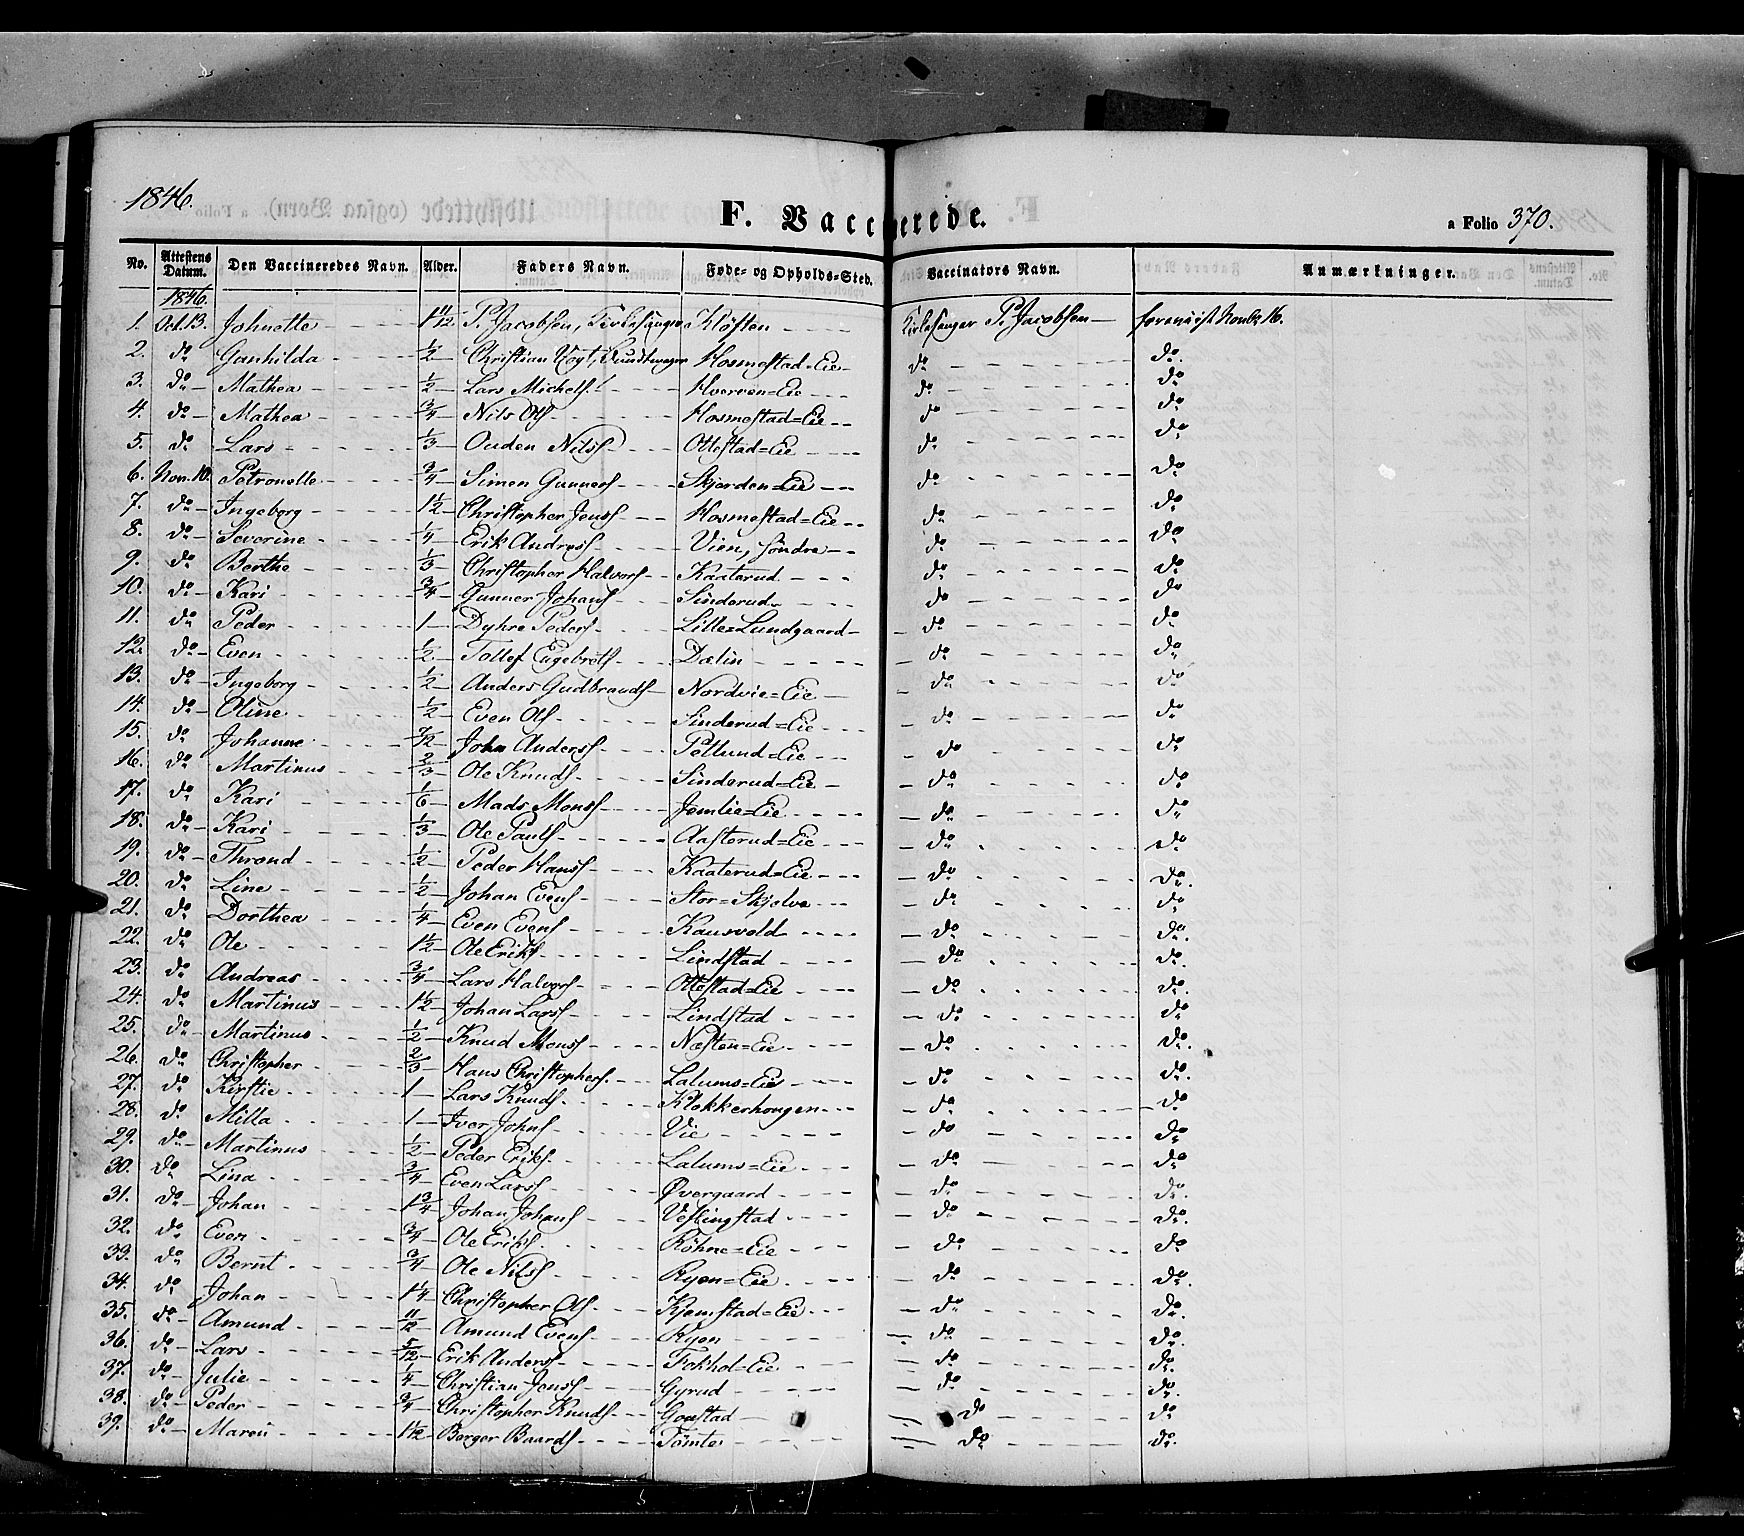 1846.
F. Vaccinerede.
a Folio 370.
No. Attestens Datum. Den Vaccineredes Navn. Alder. Faders Navn. Føde- og Opholds-Sted. Vaccinators Navn. Anmærkninger.
1846.
1. Oct. 13. Johnette 1 11/12 P. Jacobsen, Kirkesanger Kløften Kirkesanger P. Jacobsen foreviist Novbr 16.
2. do Gunhilda 1/2 Christian Vogt, Hosmestad=Eie do do
3. do Mathea 1/2 Lars Michels! Hverven=Eie do do
4. do Mathea 3/4 Nils Ols Hosmestad=Eie do do
5. do Lars 1/3 Ouden Nilss Ottestad=Eie do do
6. Nov. 10. Petronelle 3/4 Simen Gunners Skjerden=Eie do do
7. do Ingeborg 1 1/2 Christopher Jenss Hosmestad=Eie do do
8. do Severine 1/4 Erik Andress Vien, søndre do do
9. do Berthe 1/3 Christopher Halvors Kaaterud do do
10. do Kari 3/4 Gunner Johans Sinderud do do
11. do Peder 1 Dyhre Peders Lille=Lundgaard do do
12. do Even 1/2 Tollef Engebrets Dælin do do
13. do Ingeborg 1/2 Anders Gudbrands Nordvie=Eie do do
14. do Oline 1/2 Even Ols Sinderud=Eie do do
15. do Johanne 7/12 John Anderss Pætlund=Eie do do
16. do Martinus 2/3 Ole Knuds Sinderud=Eie do do
17. do Kari 1/6 Mads Monss Jemlie=Eie do do
18. do Kari 1/3 Ole Pauls Aasterud=Eie do do
19. do Thrond 1/2 Peder Hanss Kaaterud=Eie do do
20. do Line 1/2 Johan Evens Stor=Skjelve do do
21. do Dorthea 1/4 Even Evens Kausvold do do
22. do Ole 1 1/2 Ole Eriks Lindstad do do
23. do Andreas 3/4 Lars Halvors Ottestad=Eie do do
24. do Martinus 1 1/2 Johan Larss Lindstad do do
25. do Martinus 1/2 Knud Monss Næsten=Eie do do
26. do Christopher 2/3 Hans Christophers. Lalums=Eie do do
27. do Kirstie 1 Lars Knuds Klokkerhougen do do
28. do Milla 1 Iver Johns Vie do do
29. do Martinus 1/2 Peder Eriks. Lalums=Eie do do
30. do Lina 3/4 Even Larss Øvergaard do do
31. do Johan 1 3/4 Johan Johans Veslingstad do do
32. do Even 3/4 Ole Eriks. Røhne=Eie do do
33. do Bernt 3/4 Ole Nilss Ryen=Eie do do
34. do Johan 1 1/4 Christopher Ols Kjemstad=Eie do do
35. do Amund 11/12 Amund Evens Ryen do do
36. do Lars 5/12 Erik Anderss Fokhol=Eie do do
37. do Julie 1/4 Christian Jenss Gyrud do do
38. do Peder 3/4 Christopher Knuds Gonstad do do
39. do Maren 1 1/2 Berger Baards Tømte do do